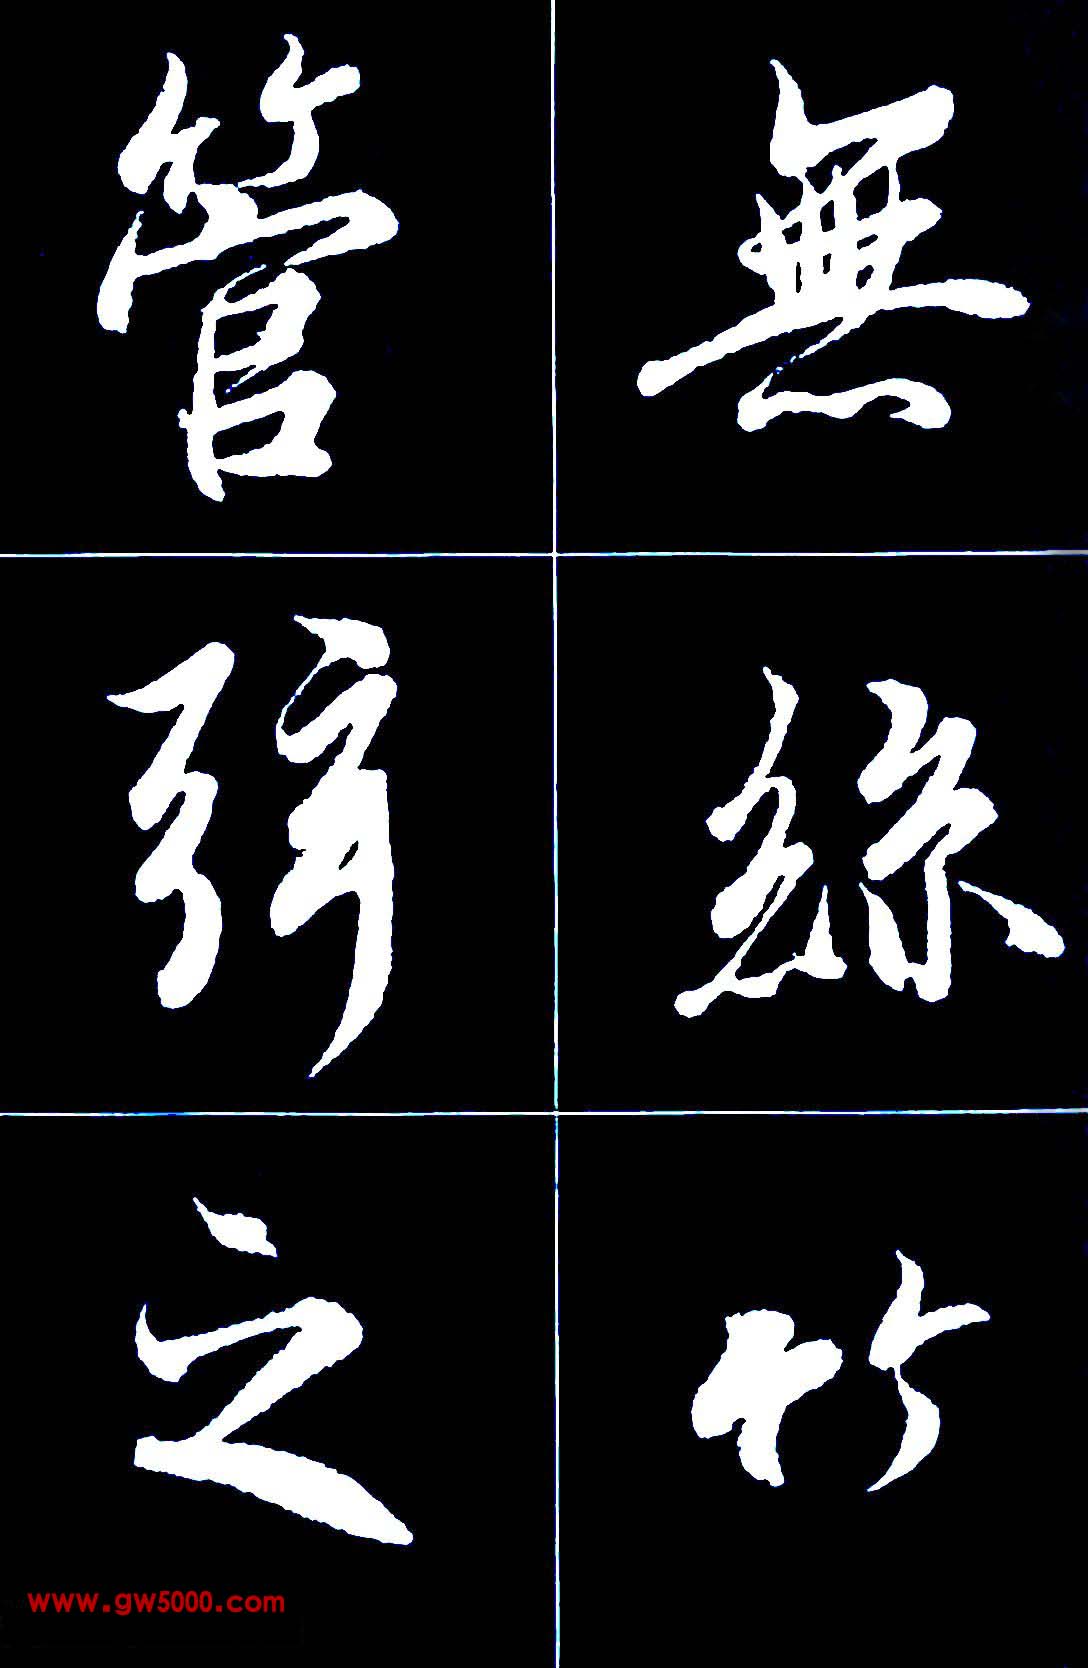 無絲竹
管弦之
www.gw5000.com